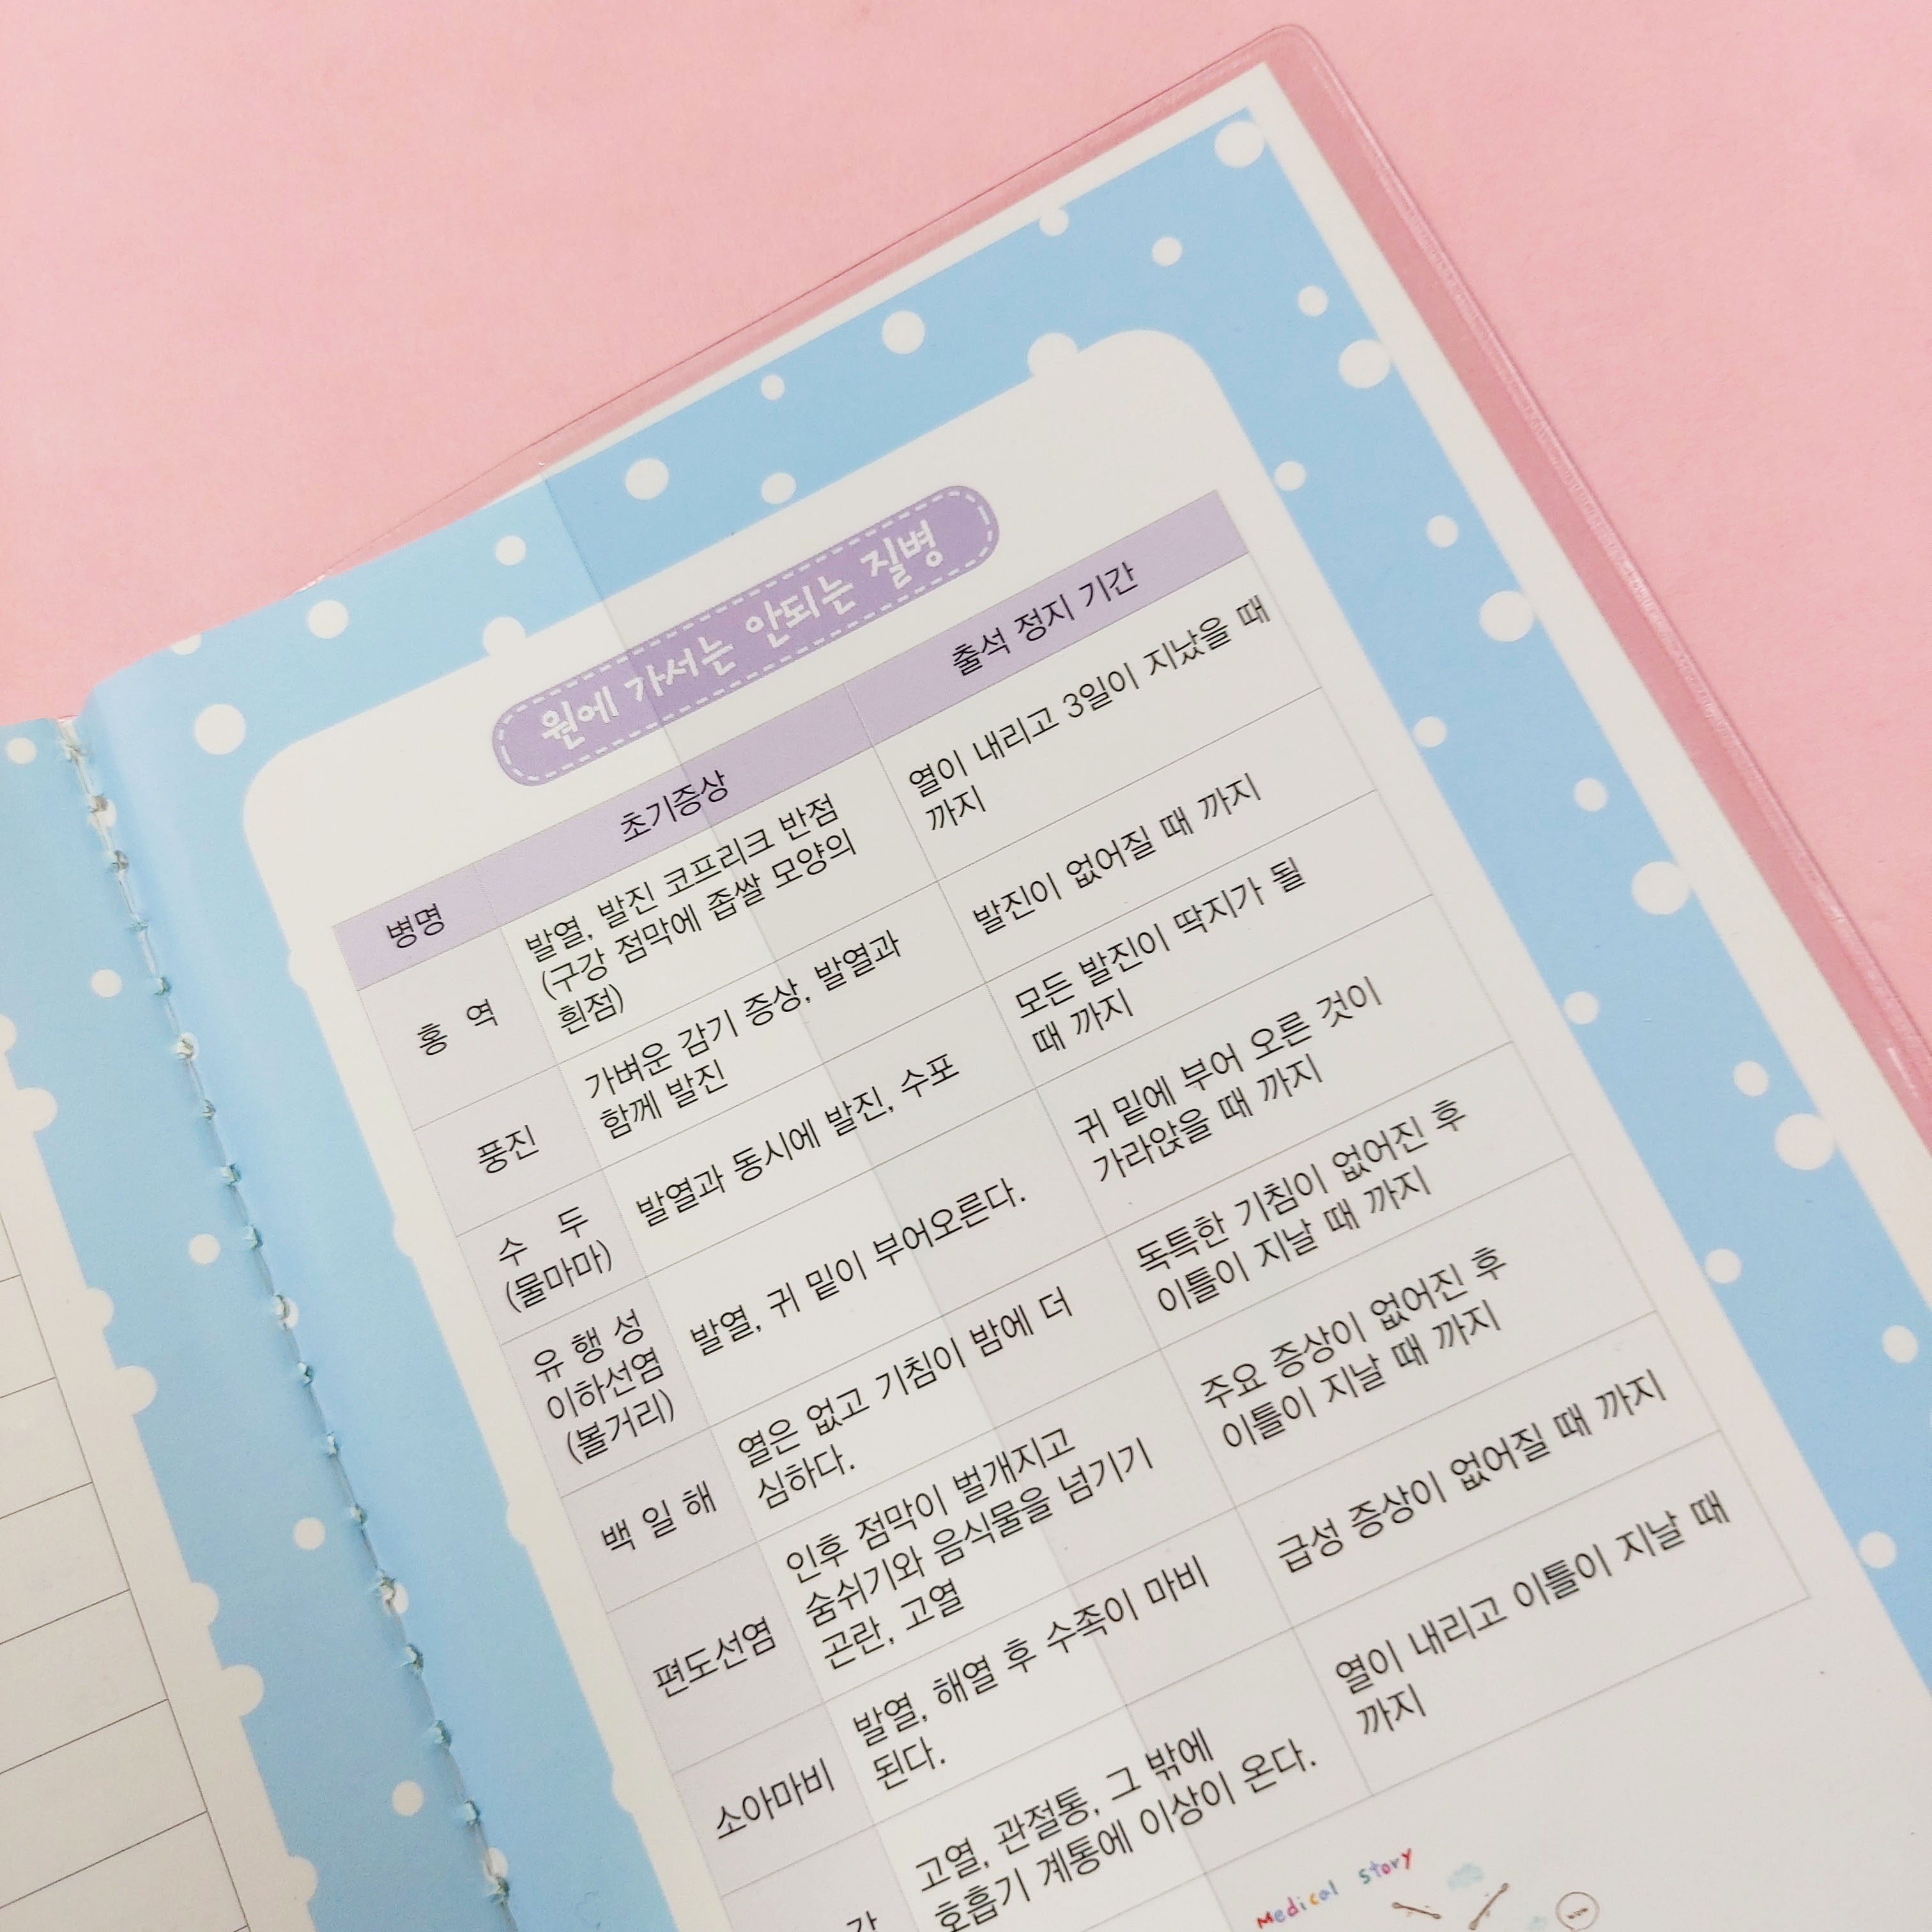 원에 가서는 안되는 질병
병명 초기증상 출석 정지 기간
홍 역
발열, 발진 코프리크 반점
(구강 점막에 좁쌀 모양의
흰점)
열이 내리고 3일이 지났을 때
까지
풍진
가벼운 감기 증상, 발열과
함께 발진
발진이 없어질 때 까지
수 두
(물마마)
발열과 동시에 발진, 수포
모든 발진이 딱지가 될
때 까지
유 행 성
이하선염
(볼거리)
발열, 귀 밑이 부어오른다.
귀 밑에 부어 오른 것이
가라앉을 때 까지
백 일 해
열은 없고 기침이 밤에 더
심하다.
독특한 기침이 없어진 후
이틀이 지날 때 까지
편도선염
인후 점막이 벌개지고
숨쉬기와 음식물을 넘기기
곤란, 고열
주요 증상이 없어진 후
이틀이 지날 때 까지
소아마비
발열, 해열 후 수족이 마비
된다.
급성 증상이 없어질 때 까지
고열, 관절통, 그 밖에
호흡기 계통에 이상이 온다.
열이 내리고 이틀이 지날 때
까지
Medical story